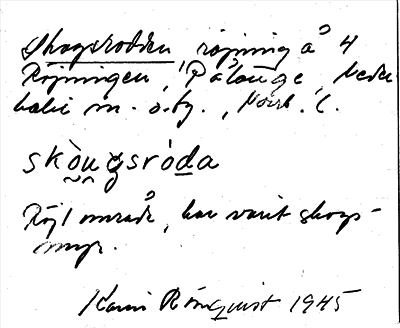 Skogsrodden röjning å 4
Röjningen, Pålänge, Neder-
kalix sn. o. ty., Norrb. l.
skò̰ṵgsròda
Röjt område, har varit skogs-
myr.
Karin Rönquist 1945